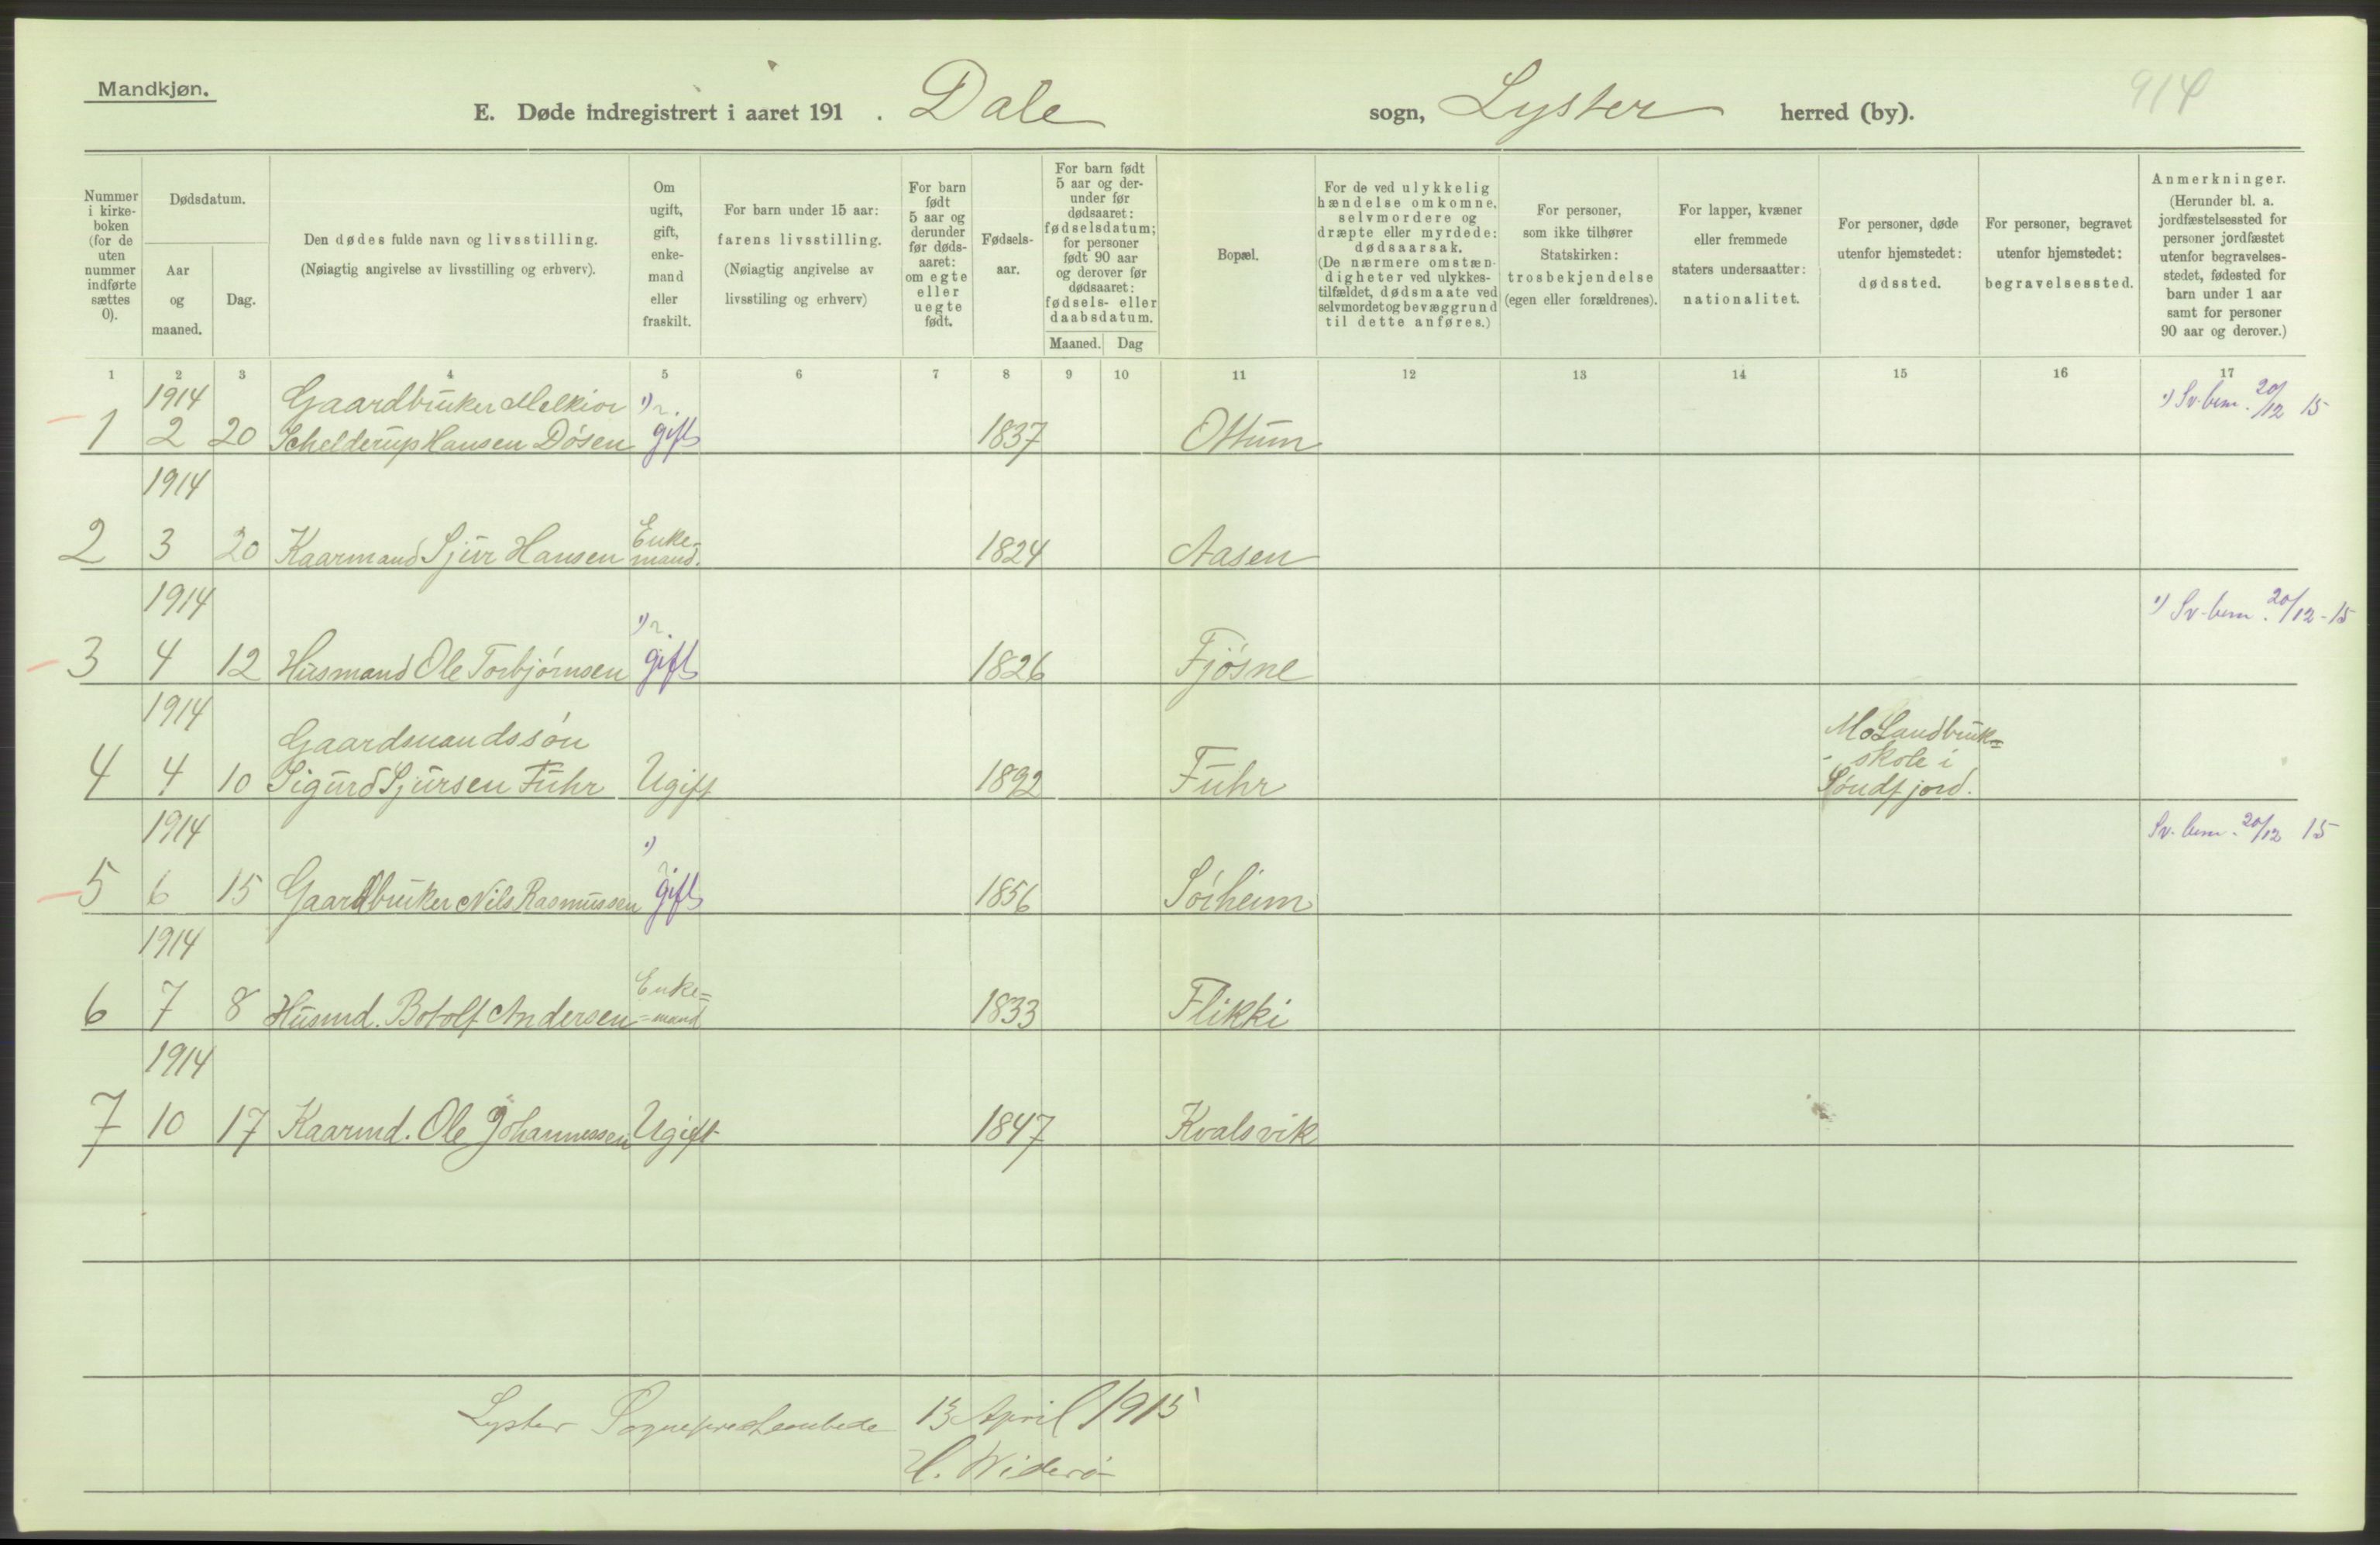 Mandkjøn.
E. Døde indregistrert i aaret 191 . Dale sogn, Lyster herred (by). 914
Nummer
i kirke-
boken
(for de
uten
nummer
indførte
sættes
0).
Dødsdatum.
Aar
og
maaned.
Dag.
Den dødes fulde navn og livsstilling.
(Nøiagtig angivelse av livsstilling og erhverv).
Om
ugift,
gift,
enke-
mand
eller
fraskilt.
For barn under 15 aar:
farens livsstilling.
(Nøiagtig angivelse av
livsstiling og erhverv)
For barn
født
5 aar og
derunder
før døds-
aaret:
om egte
eller
uegte
født.
Fødsels-
aar.
For barn født
5 aar og der-
under før
dødsaaret:
fødselsdatum;
for personer
født 90 aar
og derover før
dødsaaret:
fødsels- eller
daabsdatum.
Maaned. Dag
Bopæl.
For de ved ulykkelig
hændelse omkomne,
selvmordere og
dræpte eller myrdede:
dødsaarsak.
(De nærmere omstæn-
digheter ved ulykkes-
tilfældet, dødsmaate ved
selvmordet og bevæggrund
til dette anføres.)
For personer,
som ikke tilhører
Statskirken:
trosbekjendelse
(egen eller forældrenes).
For lapper, kvæner
eller fremmede
staters undersaatter:
nationalitet.
For personer, døde
utenfor hjemstedet:
dødssted.
For personer, begravet
utenfor hjemstedet:
begravelsessted.
Anmerkninger.
(Herunder bl. a.
jordfæstelsessted for
personer jordfæstet
utenfor begravelses-
stedet, fødested for
barn under 1 aar
samt for personer
90 aar og derover.)
1 2 3 4 5 6 7 8 9 10 11 12 13 14 15 16 17
1914 Gaardbruker Melkior 1) 1) Sv. bem. 20/12 15
1 2 20 Schelderup Hansen Døsen gift 1837 Ottum
1914
Enke-
2 3 20 Kaarmand Sjur Hansen mand. 1824 Aasen
1914 1) 1) Sv. bem. 20/12-15
3 4 12 Husmand Ole Torbjørnsen gift 1826 Fjøsne
1914 Mo Landbruk=
Gaardmandssøn skole i
4 4 10 Sigurd Sjursen Fuhr Ugift 1892 Fuhr Søndfjord.
1914 1) Sv. bem. 20/12 15
5 6 15 Gaardbruker Nils Rasmussen gift 1856 Sørheim
1914
Enke=
6 7 8 Husmd. Botolf Andersen =mand 1833 Flikki
1914
7 10 17 Kaarmd. Ole Johannessen Ugift 1847 Kvalsvik
Lyster Sogneprestembede 13 April 1915
H. Widerø